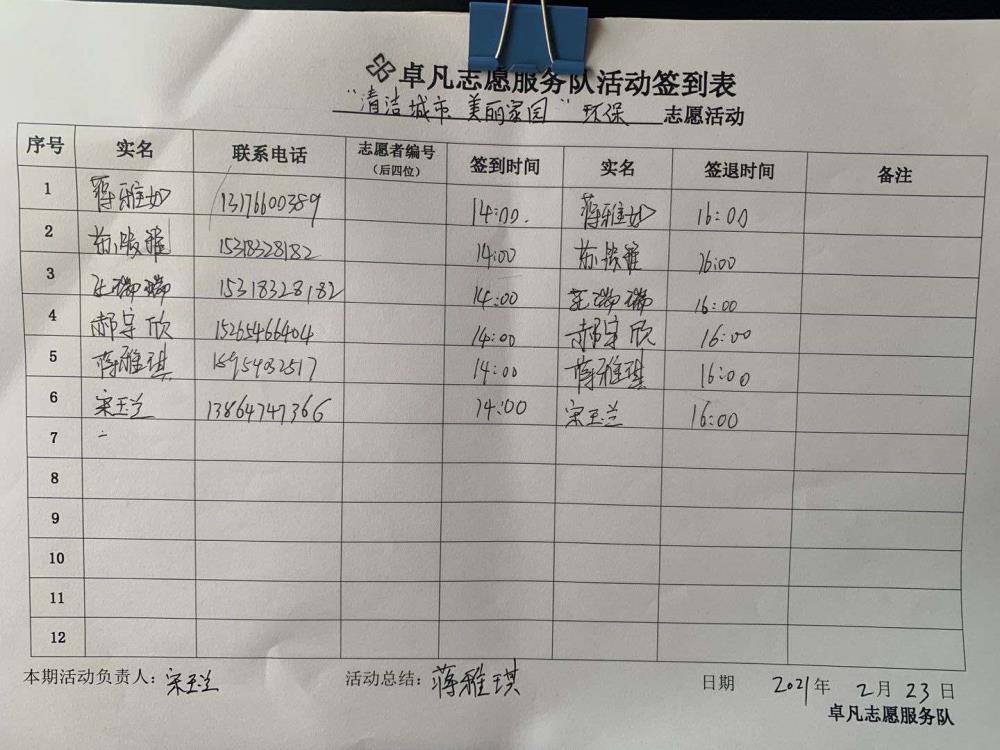 卓凡志愿服务队活动签到表
“清洁城市 美丽家园” 环保 志愿活动
序号 实名 联系电话 志愿者编号（后四位） 签到时间 实名 签退时间 备注
1 蒋雅如 13176600389 14:00. 蒋雅如 16:00
2 15318328182 14:00 16:00
3 15318328182 14:00 16:00
4 郝宇欣 15265466404 14:00 郝宇欣 16:00
5 蒋雅琪 15954032517 14:00 蒋雅琪 16:00
6 宋玉兰 13864747366 14:00 宋玉兰 16:00
7
8
9
10
11
12
本期活动负责人：宋玉兰 活动总结：蒋雅琪 日期 2021年 2月 23日
卓凡志愿服务队